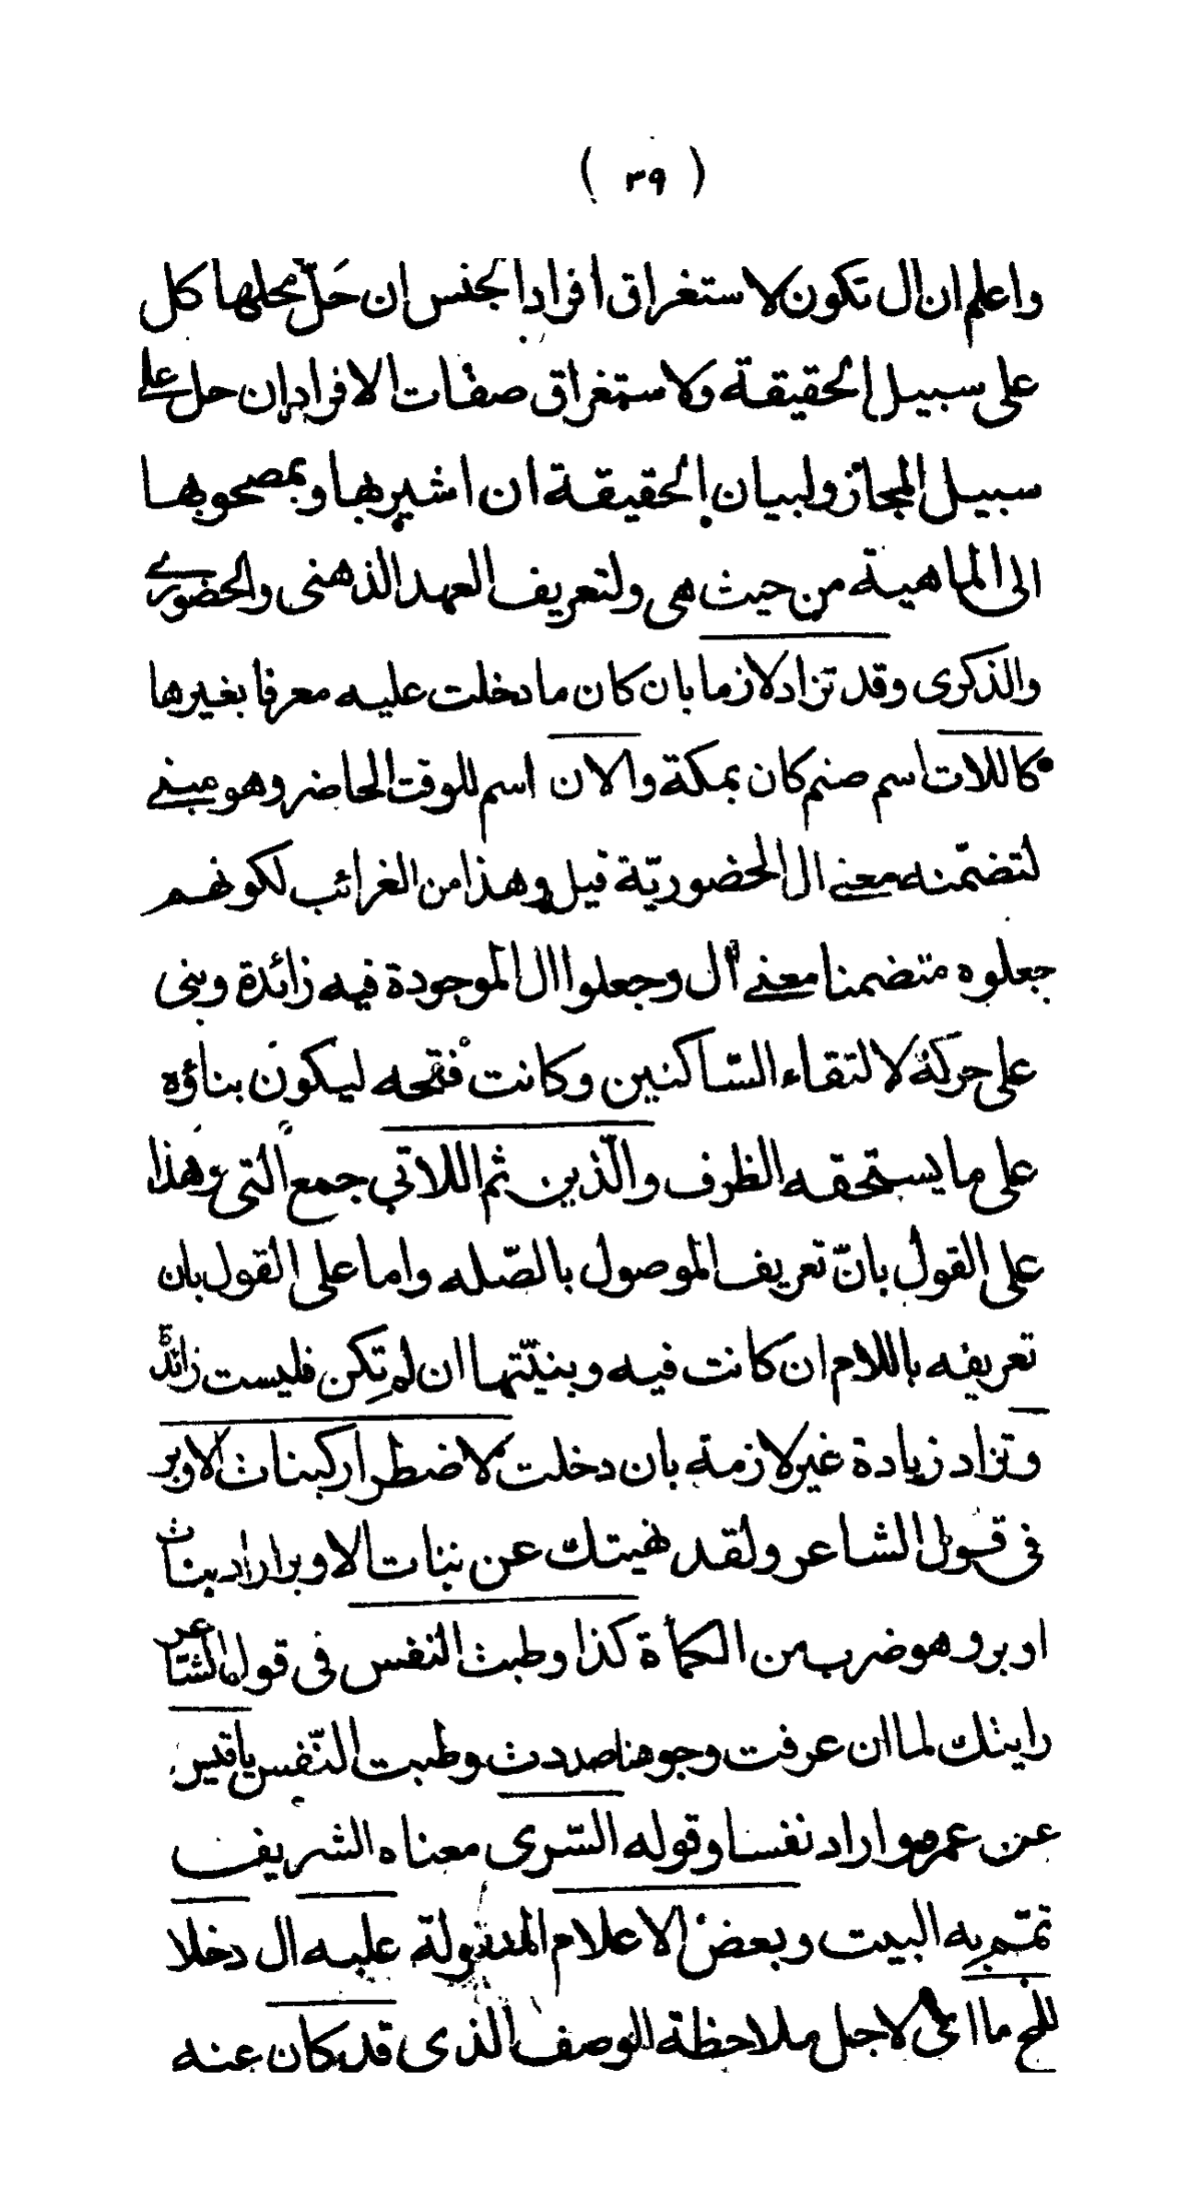 ( ٣٩ )
واعلم ان ال تكون لاستغراق افراد الجنس ان حلّ محلها كل
على سبيل الحقيقة ولاستغراق صفات الافراد ان حل على
سبيل المجاز ولبيان الحقيقة ان اشير بها وبمصحوبها
الى الماهية من حيث هى ولتعريف العهد الذهنى والحضورى
والذكرى وقد تزاد لازما بان كان ما دخلت عليه معرفا بغيرها
كاللات اسم صنم كان بمكة والان اسم للوقت الحاضر وهو مبنى
لتضمّنه معنى ال الحضوريّة قيل وهذا من الغرائب لكونهم
جعلوه متضمنا معنى ال وجعلوا ال الموجودة فيه زائدة وبنى
على حركة لالتقاء السّاكنين وكانت فتحه ليكون بناؤه
على ما يستحقه الظرف والّذين ثم اللاتي جمع التى وهذا
على القول بانّ تعريف الموصول بالصّله واما على القول بان
تعريفه باللام ان كانت فيه وبنيّتها ان لم تكن فليست زائدة
وتزاد زيادة غير لازمة بان دخلت لاضطرار كبنات الاوبر
فى قول الشاعر ولقد نهيتك عن بنات الاوبر اراد بنات
اوبر وهو ضرب من الكمأة كذا وطبت النفس فى قول الشاعر
رايتك لما ان عرفت وجوهنا صددت وطبت النّفس يا قيس
عن عمرو اراد نفسا وقوله السّرى معناه الشريف
تمّم به البيت وبعض الاعلام المنقولة عليه ال دخلا
للمح ما اى لاجل ملاحظة الوصف الذى قد كان عنه